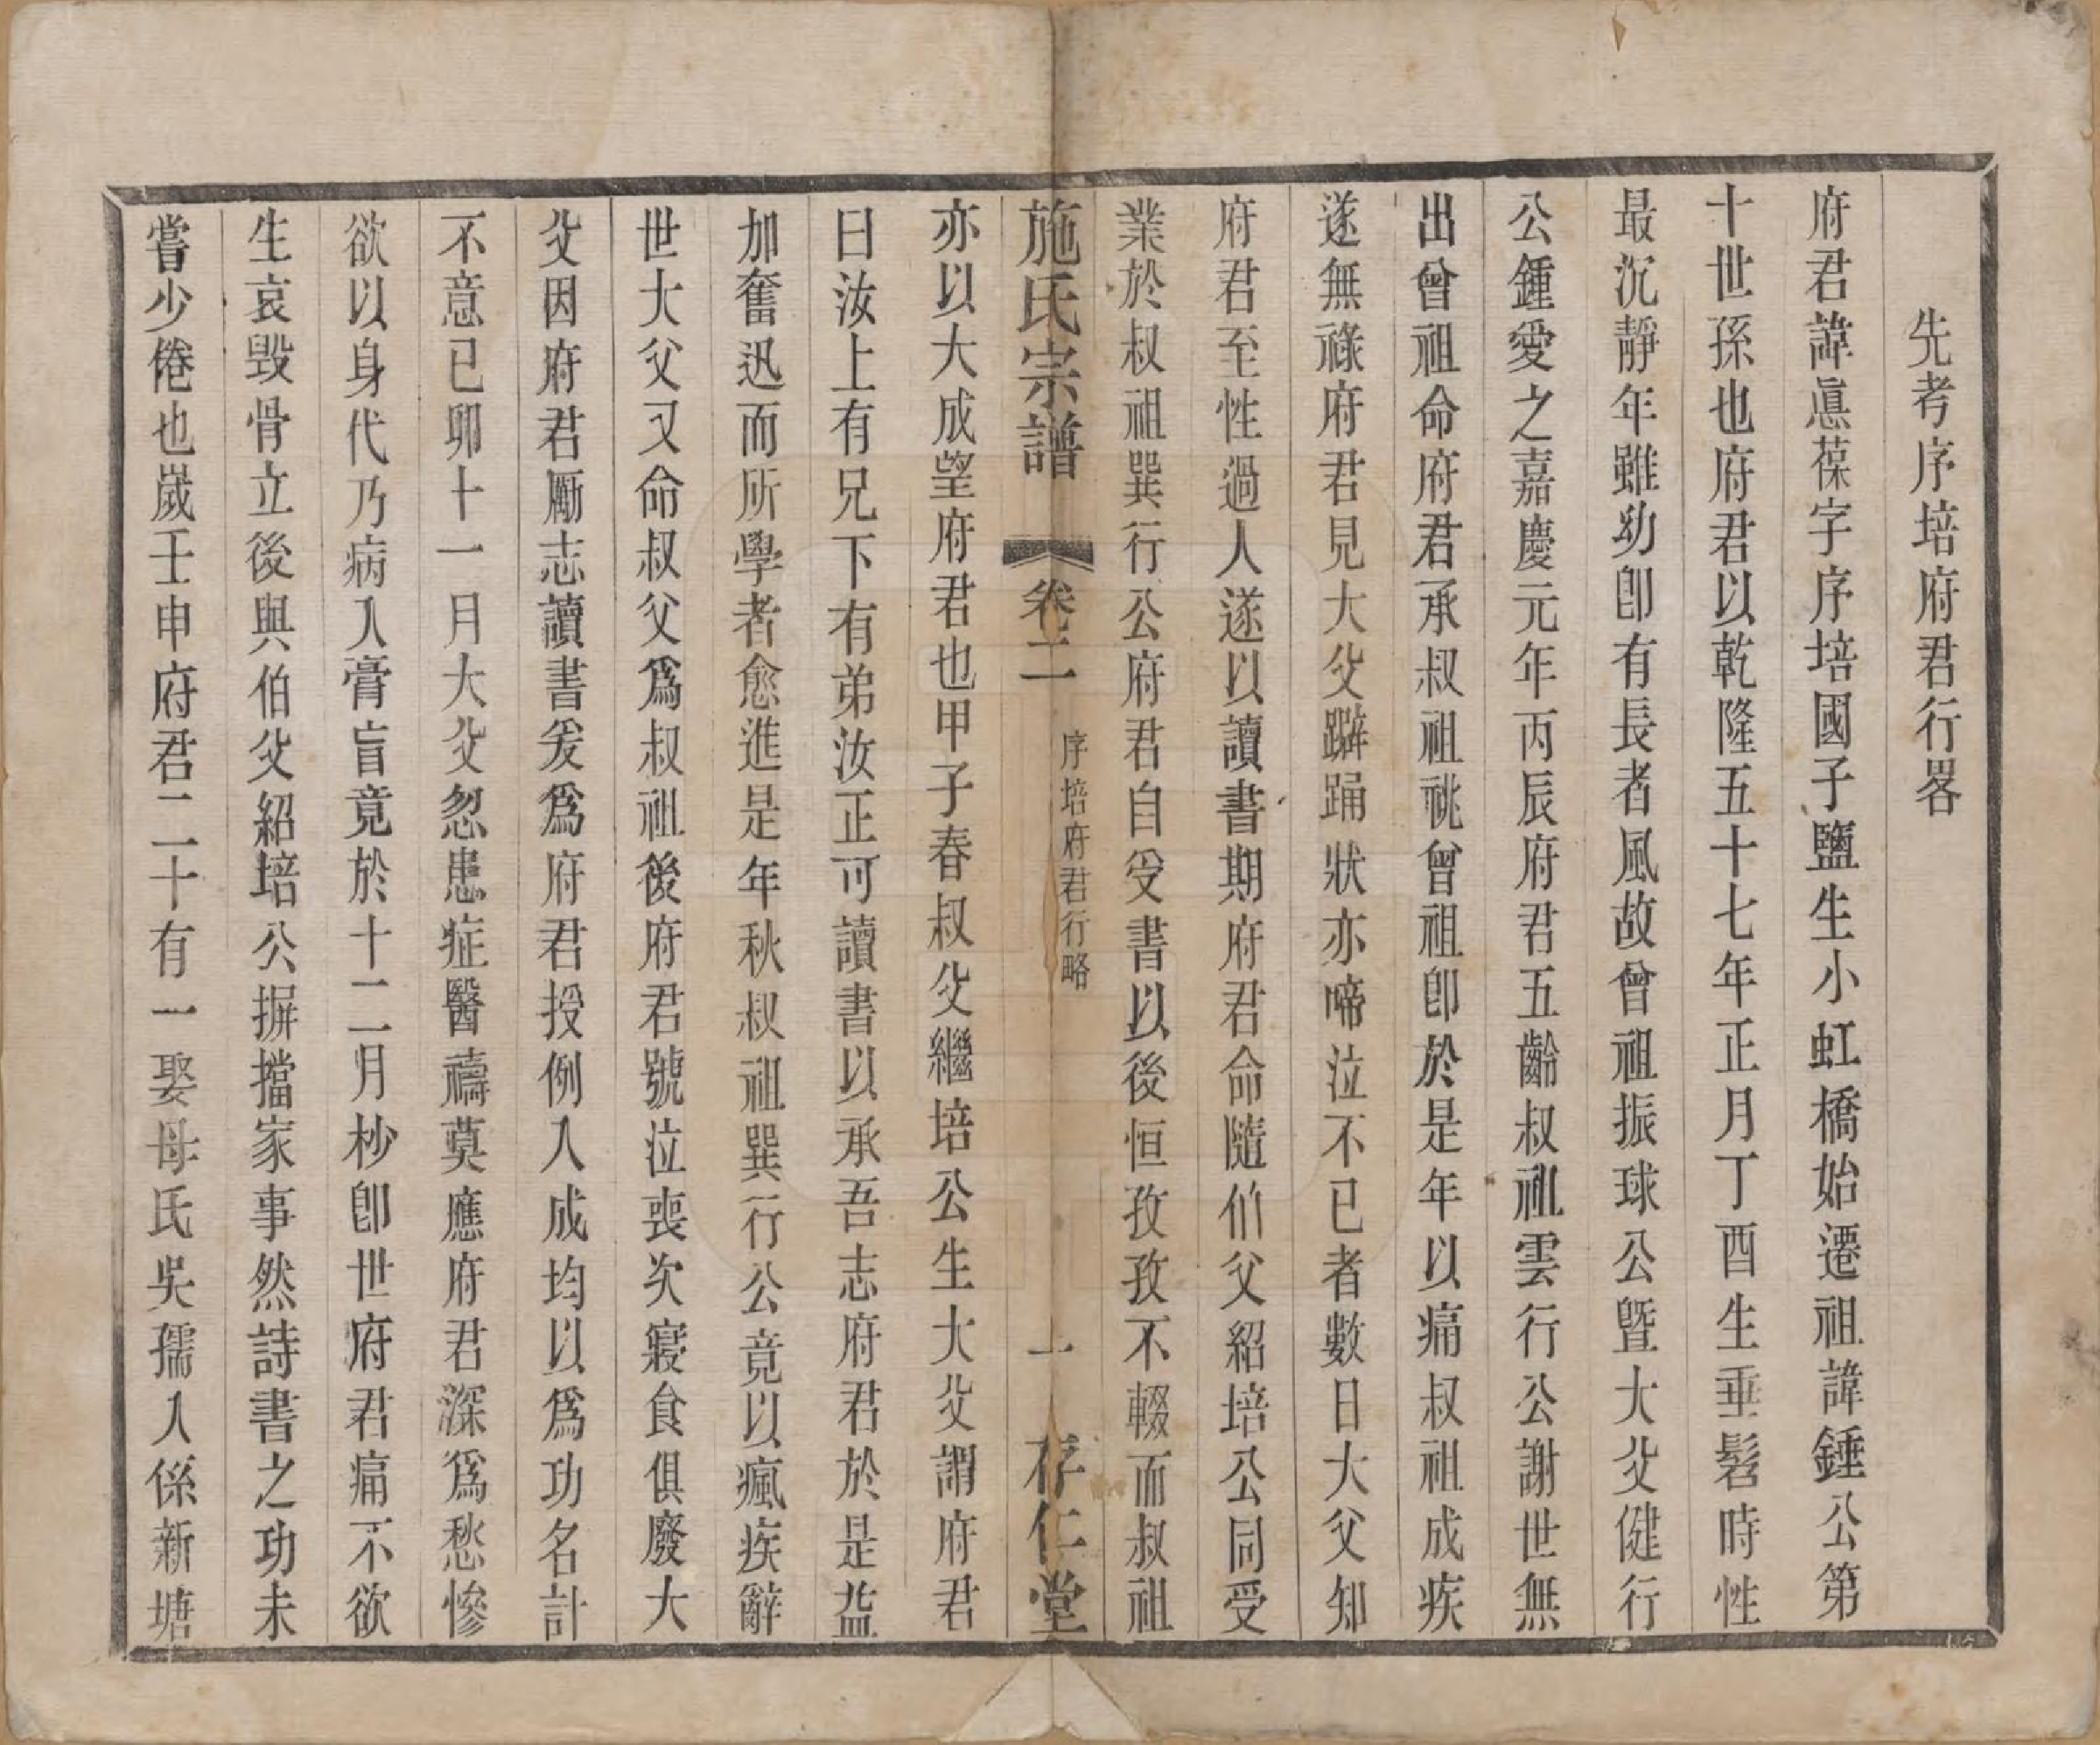 先考序培府君行畧
府君諱慐葆字序培國子鹽生小虹橋始遷祖諱錘公第
十世孫也府君以乾隆五十七年正月丁酉生垂髫時性
最沉靜年雖幼卽有長者風故曾祖振球公曁大父健行
公鍾愛之嘉慶元年丙辰府君五齡叔祖雲行公謝世無
出曾祖命府君承叔祖祧曾祖卽於是年以痛叔祖成疾
遂無祿府君見大父躃踊狀亦啼泣不已者數日大父知
府君至性過人遂以讀書期府君命隨伯父紹培公同受
業於叔祖巽行公府君自受書以後恒孜孜不輟而叔祖
施氏宗譜 卷二 序培府君行略 一 存仁堂
亦以大成望府君也甲子春叔父繼培公生大父謂府君
曰汝上有兄下有弟汝正可讀書以承吾志府君於是益
加奮迅而所學者愈進是年秋叔祖巽行公竟以瘋疾辭
世大父又命叔父爲叔祖後府君號泣喪次寢食俱廢大
父因府君勵志讀書爰爲府君授例入成均以爲功名計
不意已卯十一月大父忽患症醫禱莫應府君深爲愁慘
欲以身代乃病入膏盲竟於十二月杪卽世府君痛不欲
生哀毀骨立後與伯父紹培公摒擋家事然詩書之功未
嘗少倦也歲壬申府君二十有一娶母氏吳孺人係新塘